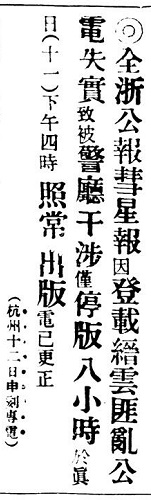 ◎全浙公報彗星報因登載縉雲匪亂公
電失實致被警廳干涉僅停版八小時於眞
日(十一)下午四時照常出版電已更正
(杭州十二日申刻專電)